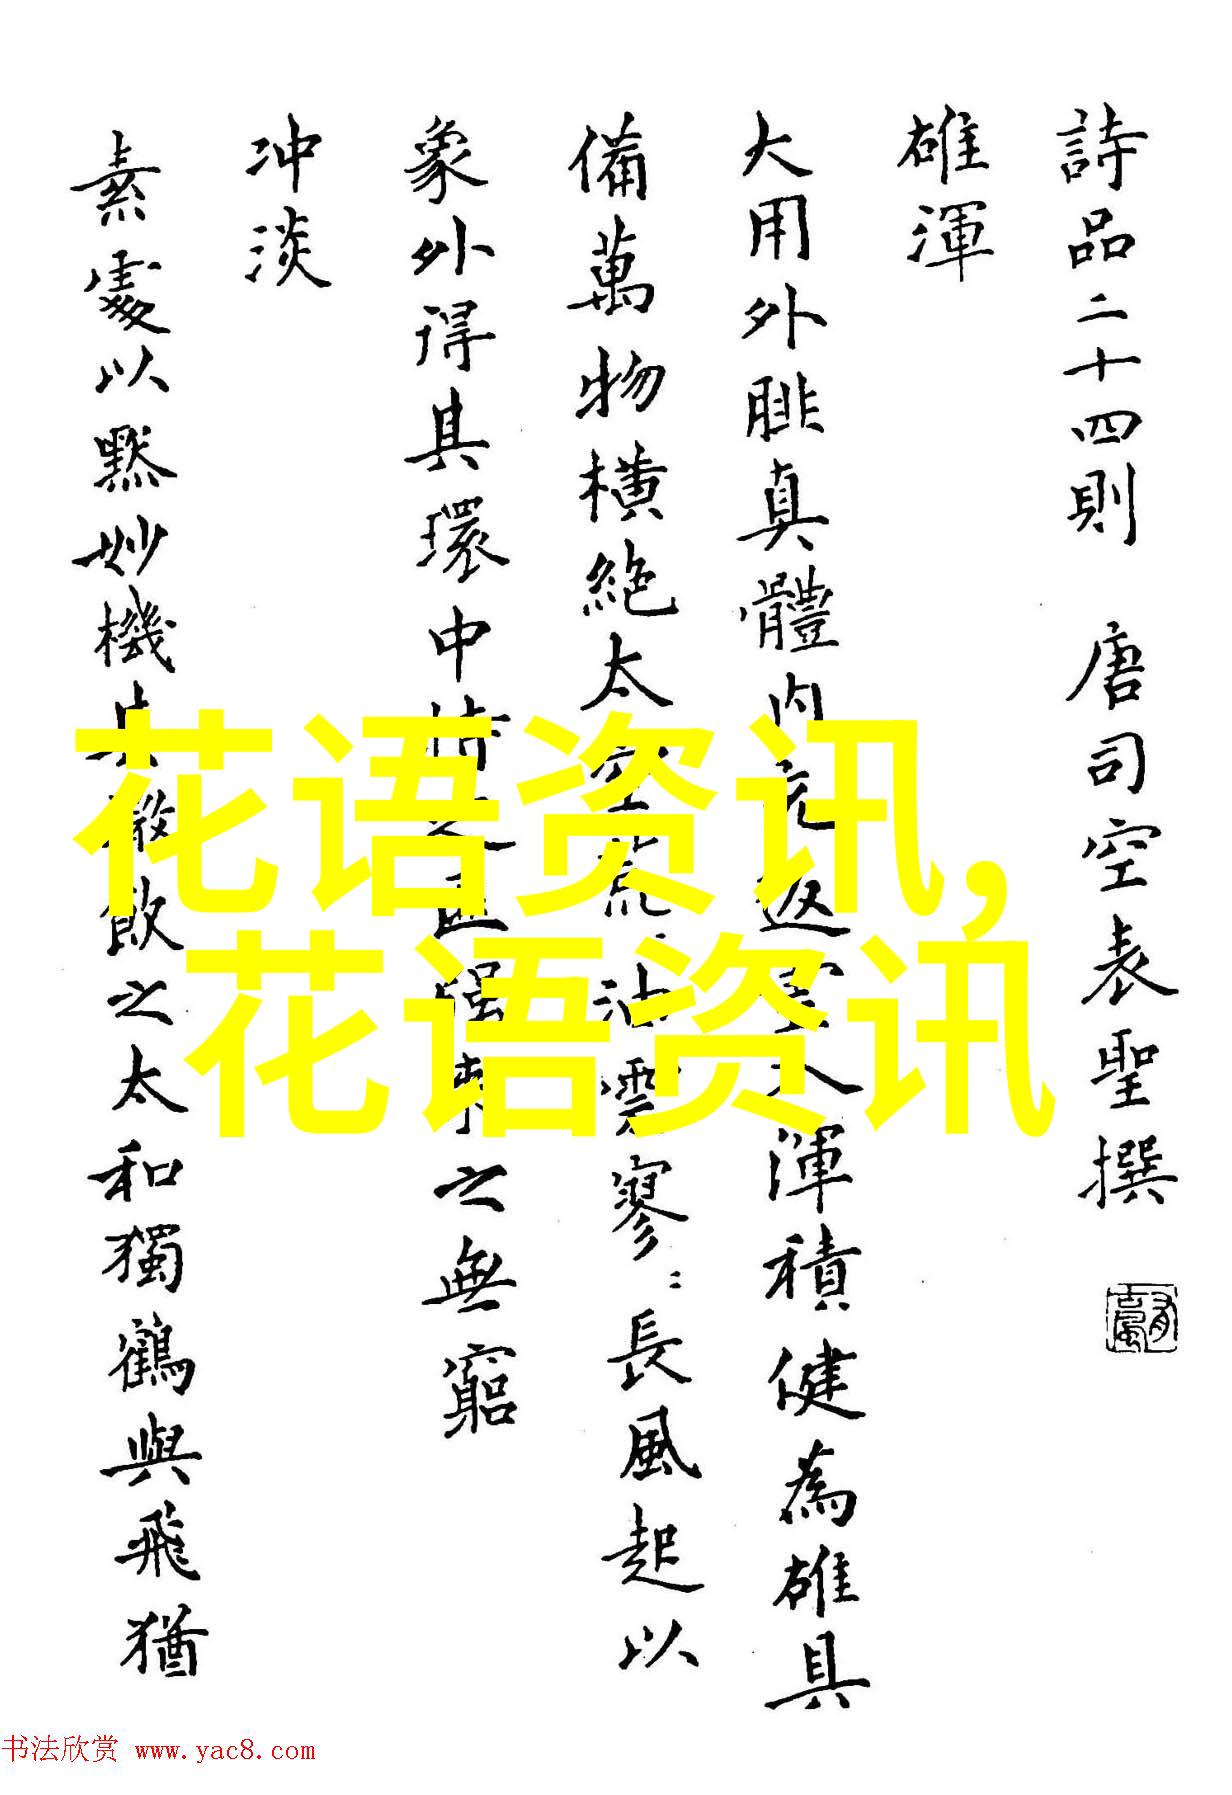 詩品二十四則 唐司空表聖撰
雄渾
大用外腓真體内充返入渾積健為雄具
備萬物橫絕太空荒〻油雲寥〻長風起以
象外得其環中持之匪强來之無窮
冲淡
素處以默妙機其微飲之太和獨鶴與飛猶
花语资讯,
花语资讯
书法欣赏 www.yac8.com